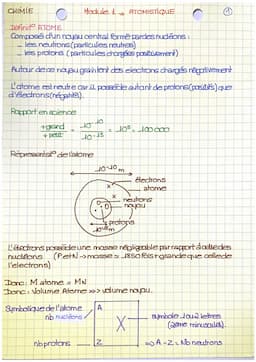 CHIMIE Module 1 → ATOMISTIQUE ①
Définit° ATOME
Composé d'un noyau central formé par des nucléons :
- les neutrons (particules neutres)
- les protons (particules chargées positivement)
Autour de ce noyau gravitent des électrons chargés négativement
L'atome est neutre car il possède autant de protons (positifs) que
d'électrons (négatifs).
Rapport en science
+ grand / + petit = 10^-10 / 10^-15 = 10^5 = 100 000
Représentat° de l'atome
10^-10 m
électrons
atome
neutrons
noyau
protons
L'électrons possède une masse négligeable par rapport à celle des
nucléons (P et N → masse ≈ 1850 fois + grande que celle de
l'électrons)
Donc : M atome = MN
Donc : Volume Atome >>> volume noyau.
Symbolique de l'atome
nb nucléons
A
X
symbole 1 ou 2 lettres
(2ème minuscule).
nb protons
Z
⇒ A - Z = Nb neutrons